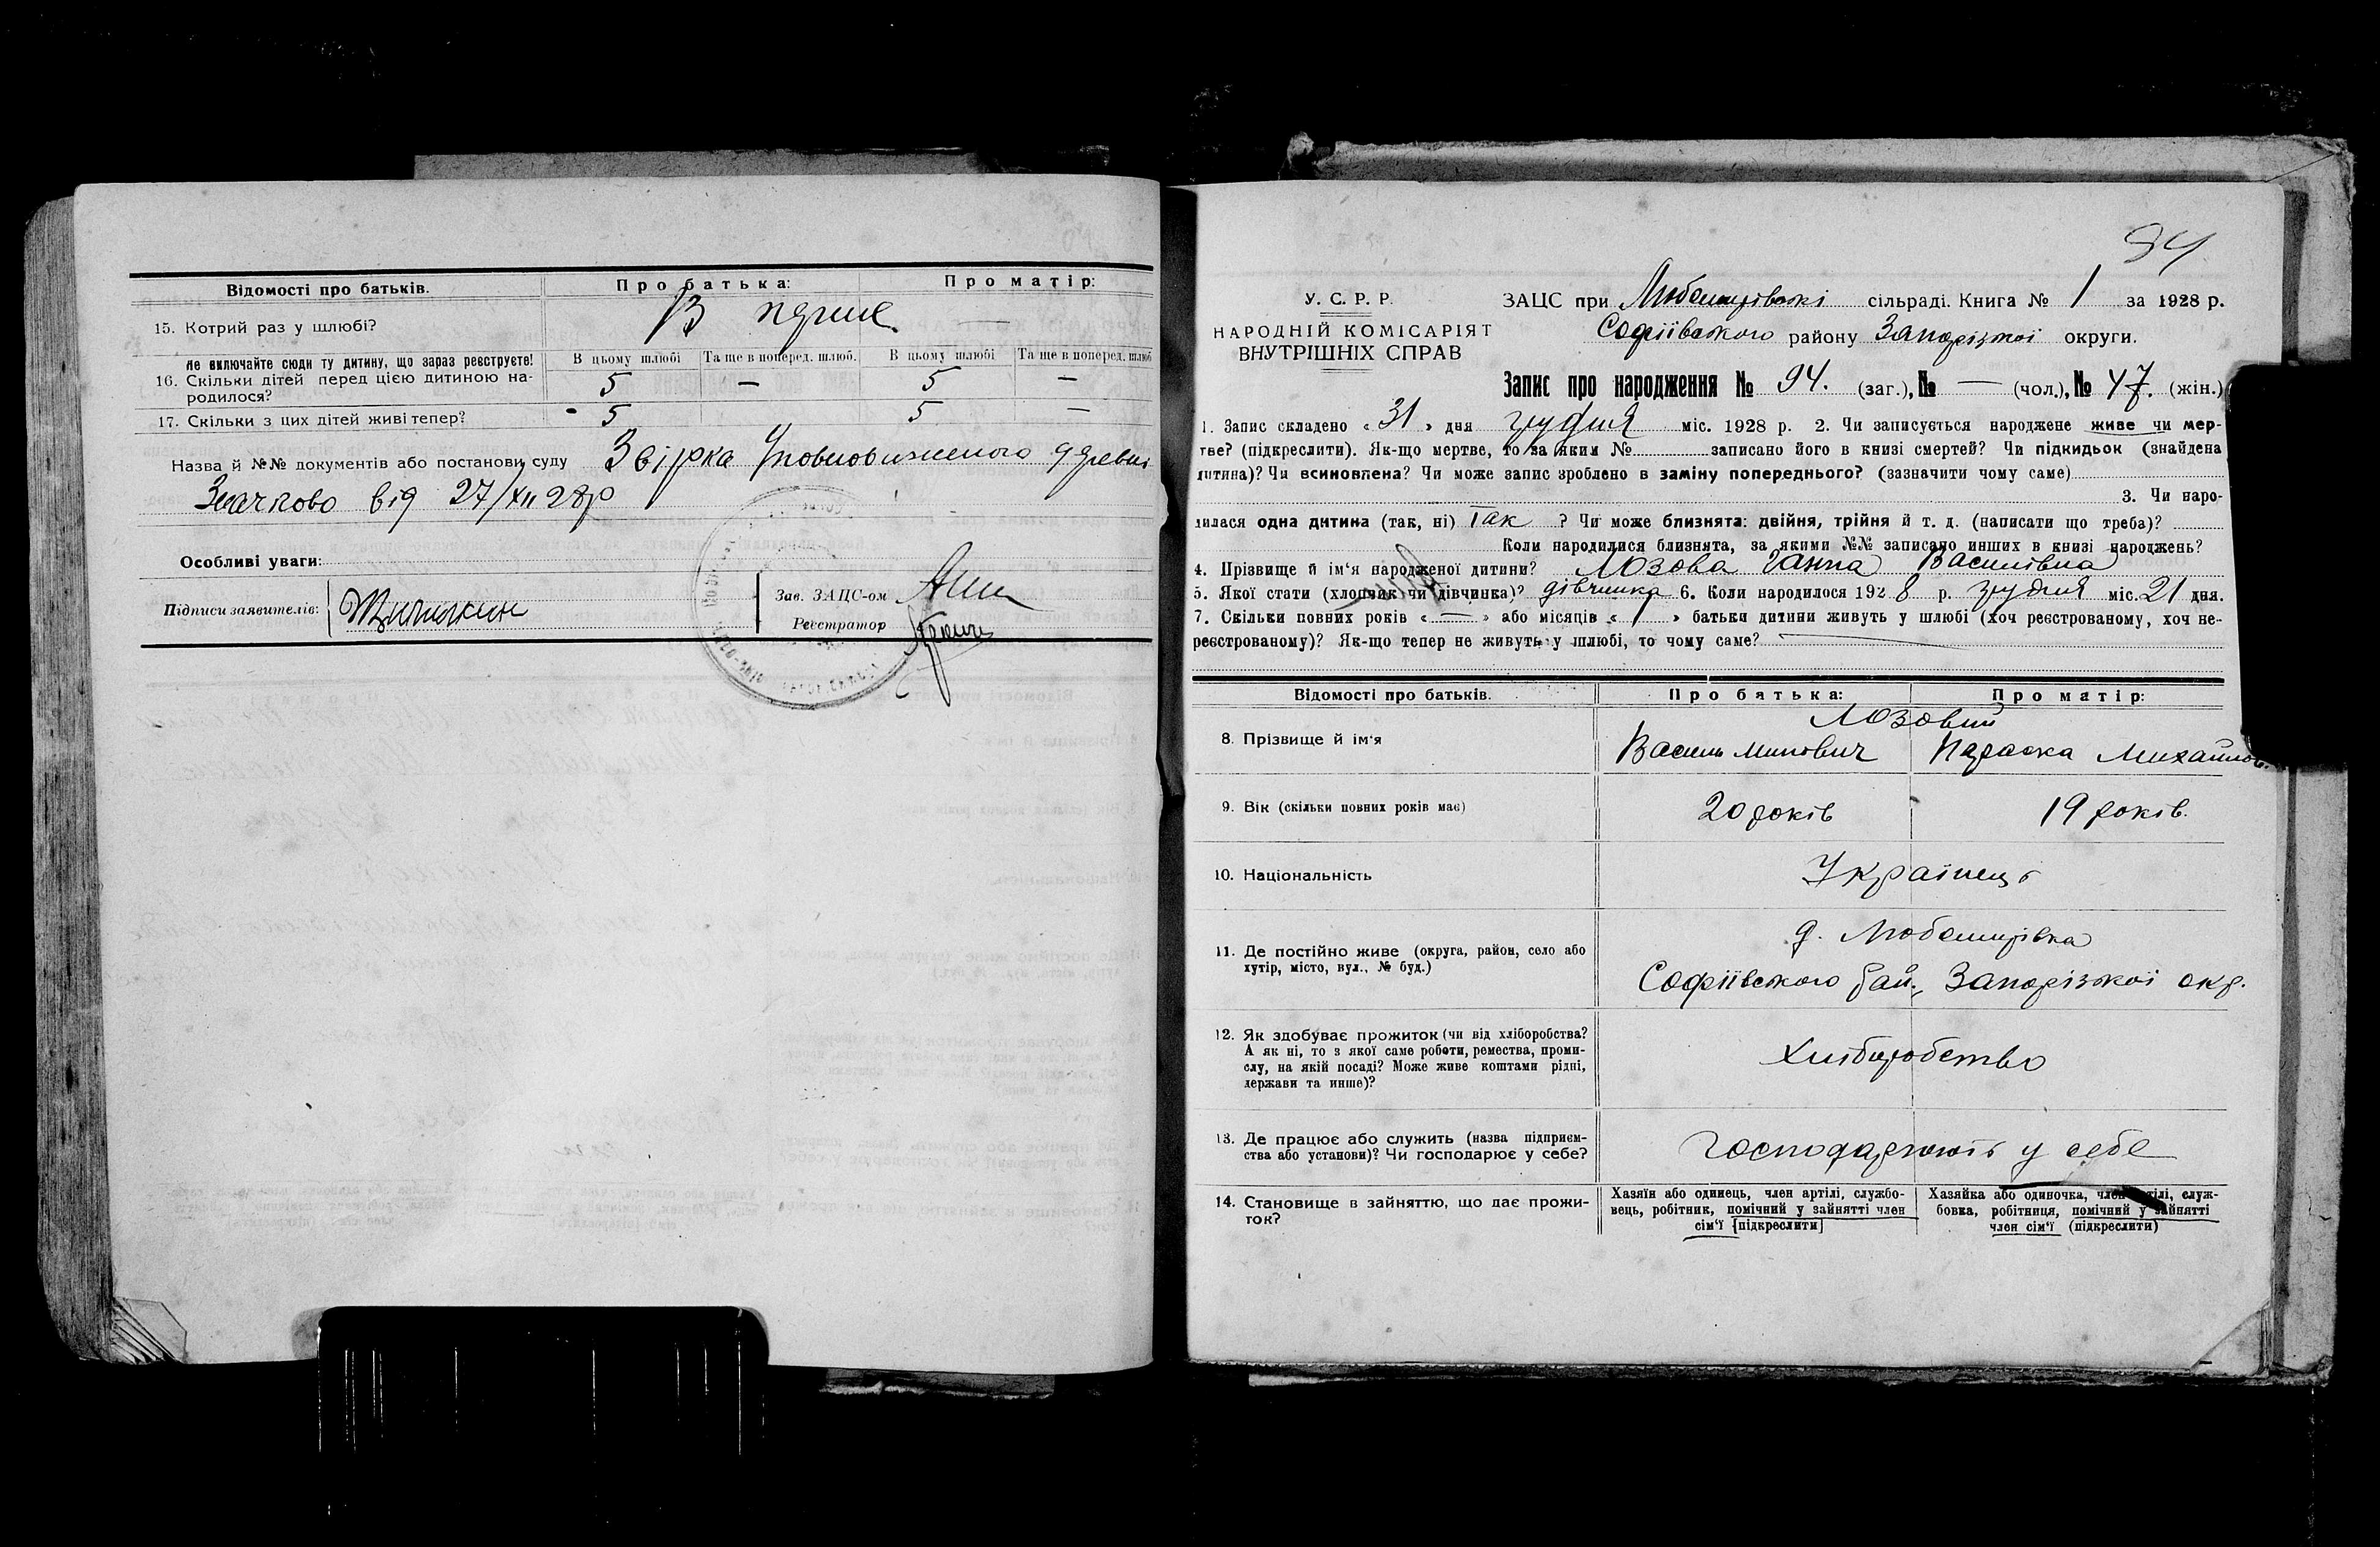 Відомості про батьків. Про батька: Про матір:
15. Котрий раз у шлюбі? В перше —
Не включайте сюди ту дитину, що зараз реєструєте! В цьому шлюбі Та ще в поперед. шлюб. В цьому шлюбі Та ще в поперед. шлюб
16. Скільки дітей перед цією дитиною на- 5 — 5 —
родилося?
17. Скільки з цих дітей живі тепер? 5 5 —
Назва й №№ документів або постанови суду Звірка Уповноваженого
від 27/XII 28р
Особливі уваги:
Підписи заявителів:
Зав. ЗАЦС-ом
Реєстратор
94
У. С. Р. Р.
НАРОДНІЙ КОМІСАРІЯТ
ВНУТРІШНІХ СПРАВ
ЗАЦС при Любомирівські сільраді. Книга № 1 за 1928 р.
Софіївського району Запорізької округи.
Запис про народження № 94. (заг.), № — (чол.), № 47. (жін.)
1. Запис складено « 31 » дня грудня міс. 1928 р. 2. Чи записується народжене живе чи мер-
тве? (підкреслити). Як-що мертве, то за яким № записано його в книзі смертей? Чи підкидьок (знайдена
дитина)? Чи всиновлена? Чи може запис зроблено в заміну попереднього? (зазначити чому саме)
3. Чи наро-
дилася одна дитина (так, ні) Так ? Чи може близнята: двійня, трійня й т. д. (написати що треба)?
Коли народилися близнята, за якими №№ записано инших в книзі народжень?
4. Прізвище й ім'я народженої дитини? Лозова Ганна Василівна
5. Якої стати (хлопчик чи дівчинка)? дівчинка 6. Коли народилося 1928 р. грудня міс. 21 дня.
7. Скільки повних років « — » або місяців « 1 » батьки дитини живуть у шлюбі (хоч реєстрованому, хоч не-
реєстрованому)? Як-що тепер не живуть у шлюбі, то чому саме? —
Відомості про батьків. Про батька: Про матір:
Лозовий
8. Прізвище й ім'я Василь Минович Параска Михайлов.
9. Вік (скільки повних років має) 20 років 19 років.
10. Національність Українець
11. Де постійно живе (округа, район, село або д. Любомирівка
хутір, місто, вул., № буд.) Софіївського рай., Запорізької окр.
12. Як здобуває прожиток (чи від хліборобства? Хліборобство
А як ні, то з якої саме роботи, ремества, проми-
слу, на якій посаді? Може живе коштами рідні,
держави та инше)?
13. Де працює або служить (назва підприєм- господарюють у себе
ства або установи)? Чи господарює у себе?
14. Становище в зайняттю, що дає прожи- Хазяїн або одинець, член артілі, службо- Хазяйка або одиночка, член артілі, служ-
ток? вець, робітник, помічний у зайнятті член бовка, робітниця, помічний у зайнятті
сім'ї [підкреслити] член сім'ї (підкреслити)